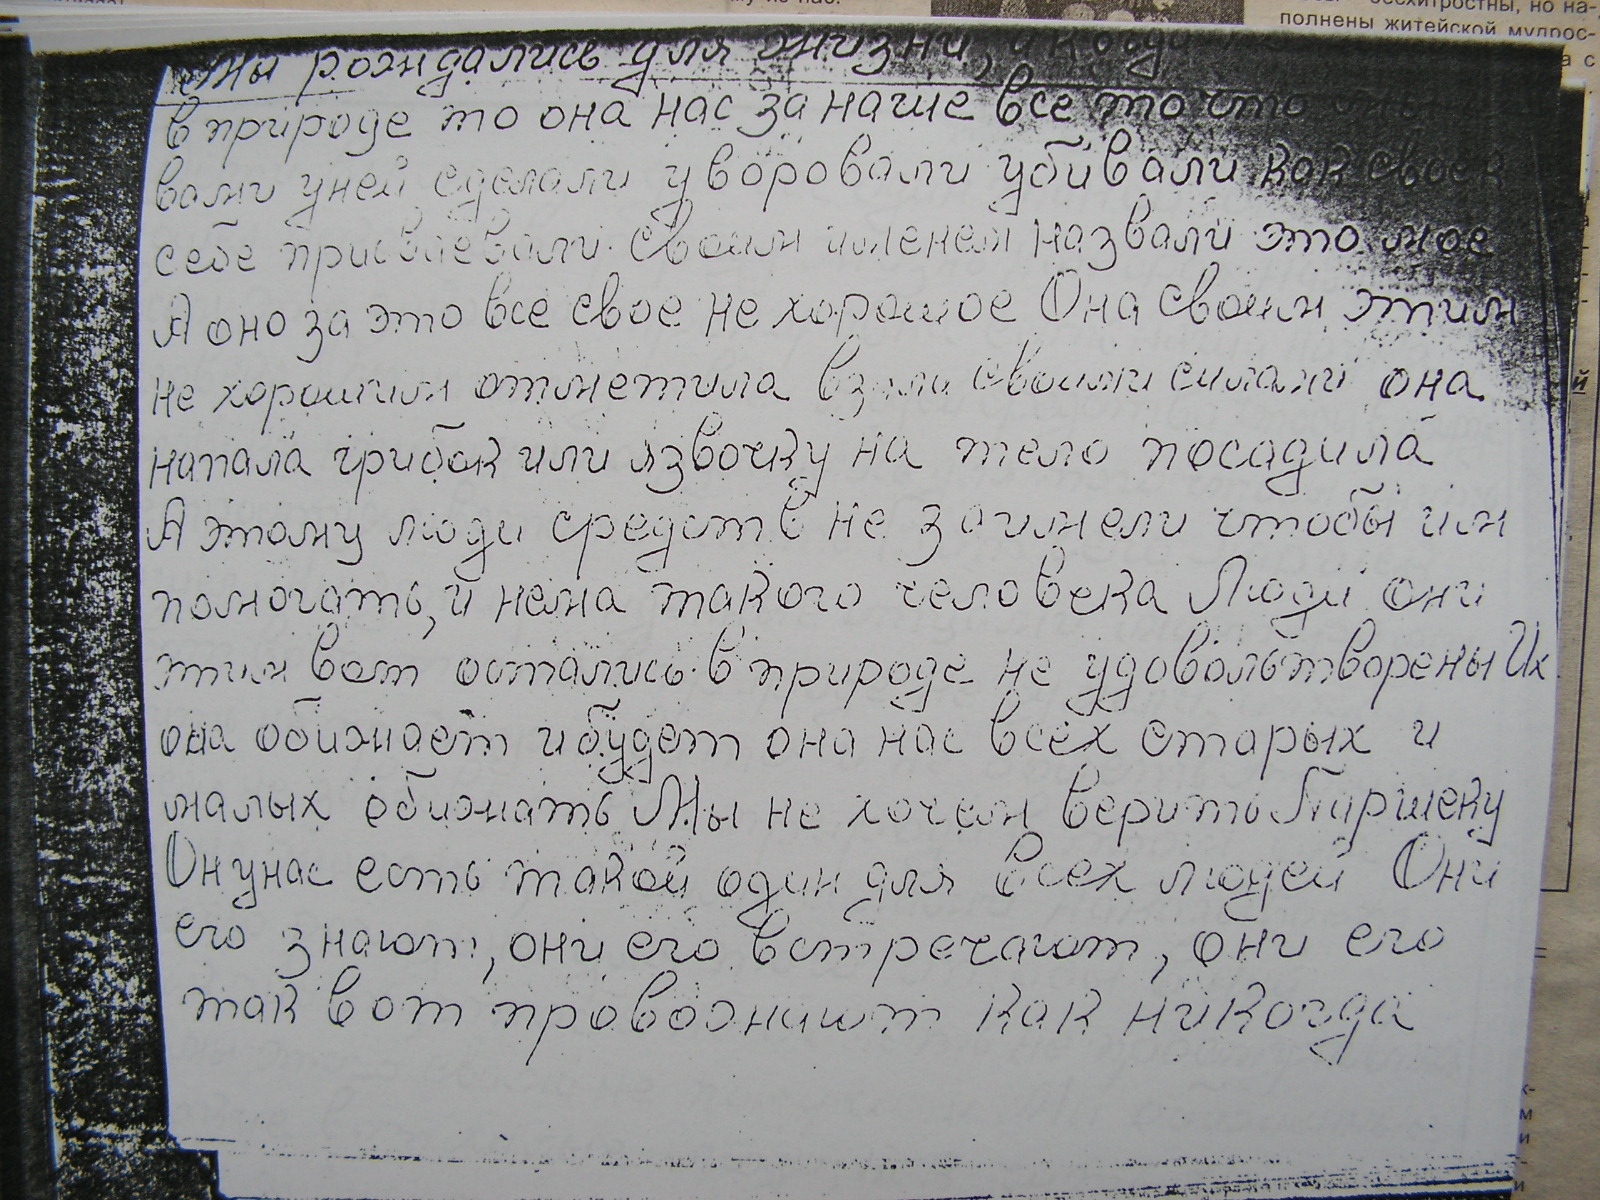 му не нас.
бесхитростны, но на-
полнены житейской мудрос-
а с
мы рождались для жизни, и когда
в природе то она нас за наше все то что мы
вами уней сделали уворовали убивали как свое к
себе присваевали своим именем назвали это мое
А оно за это все свое не хорошое Она своим этим
не хорошим отметила взяли своими силами она
напала грибок или язвочку на тело посадила
А этому люди средств не заимели чтобы им
помогать, и нема такого человека Люди они
этим вот остались в природе не удовольтворены Их
она обижает и будет она нас всех старых и
малых обижать Мы не хочем верить Паршеку
Он у нас есть такой один для всех людей Они
его знают, они его встречают, они его
так вот провожают как никогда